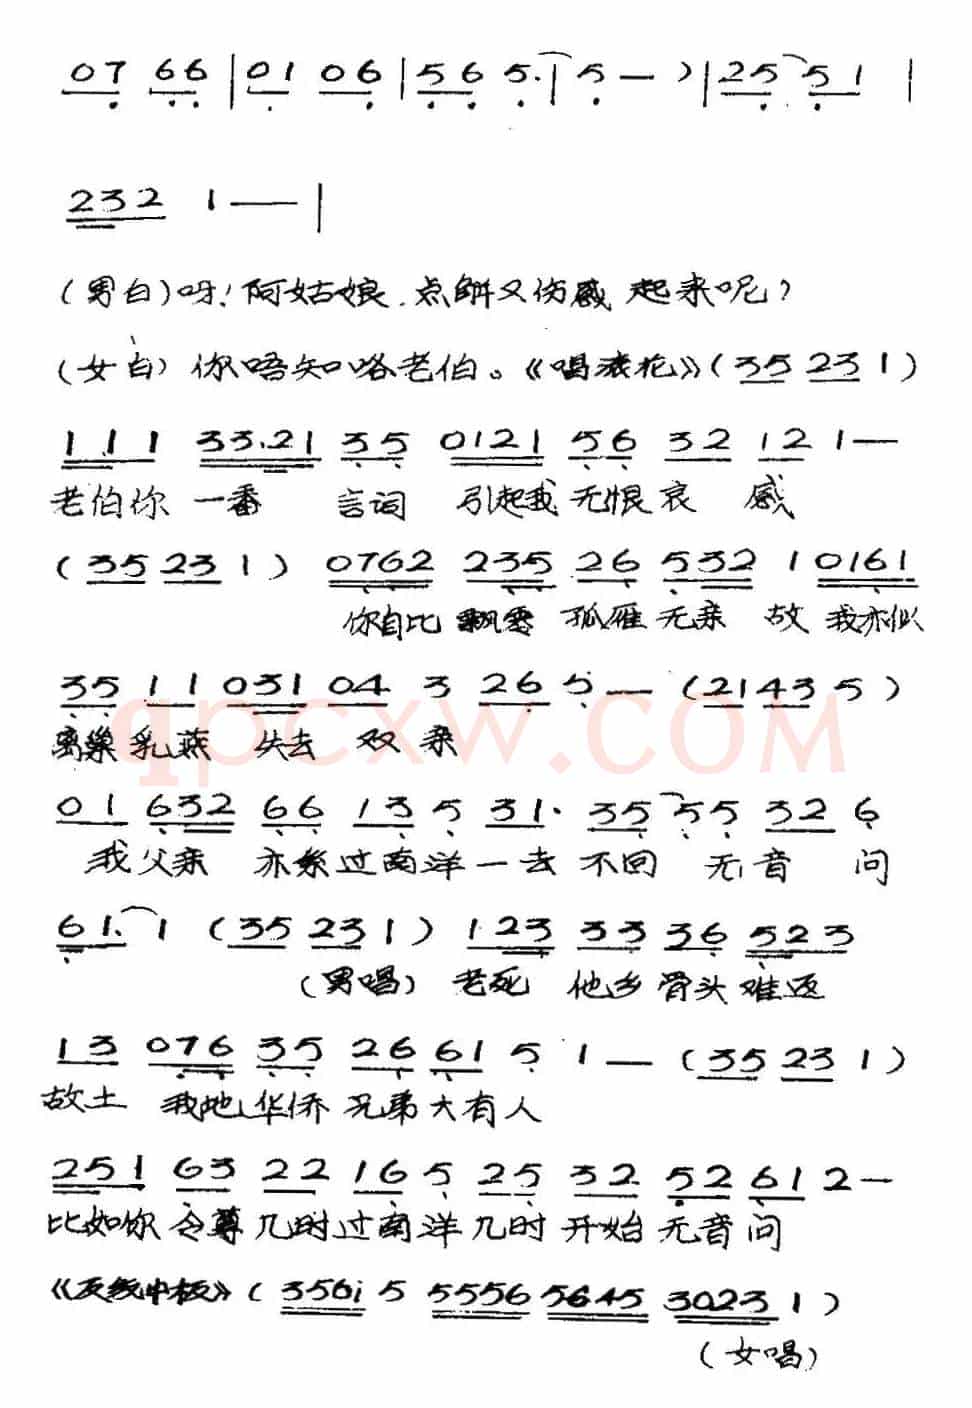 07 66 | 01 06 | 56 5. | 5 — ) | 25 51 |
232 1 — |
(男白)呀!阿姑娘.点解又伤感起来呢?
(女白)你唔知咯老伯。《唱滚花》(35 23 1)
111 33.21 35 0121 56 32 12 1—
老伯你 一番 言词 引起我 无恨 哀 感
(35 23 1) 0762 235 26 532 1 0161
你自比 飘零 孤雁 无亲 故 我亦似
35 11 031 04 3 26 5— (2143 5)
离巢 乳燕 失去 双亲
qpcxw.COM
01 632 66 13 5 31. 35 55 32 6
我父亲 亦系过南洋一去 不回 无音 问
61. 1 (35 23 1) 123 33 36 523
(男唱) 老死 他乡 骨头 难返
13 076 35 26 61 5 1 — (35 23 1)
故土 我地 华侨 兄弟 大有人
251 63 22 16 5 25 32 52 61 2—
比如你 令尊 几时过南洋几时 开始 无音问
《反线中板》(356i 5 5556 5645 3023 1)
(女唱)